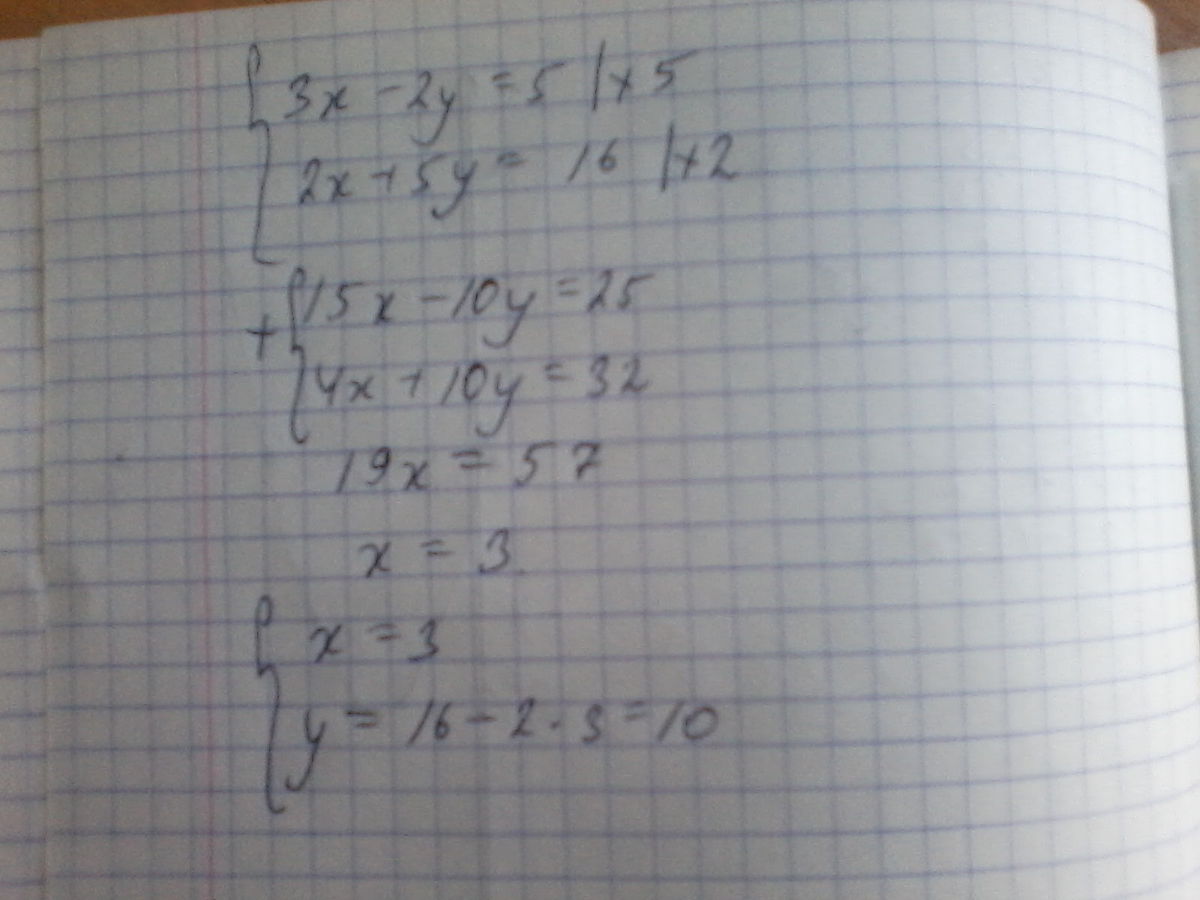 3x - 2y = 5 | × 5
2x + 5y = 16 | × 2
+ 15x - 10y = 25
4x + 10y = 32
19x = 57
x = 3
x = 3
y = 16 - 2 · 3 = 10